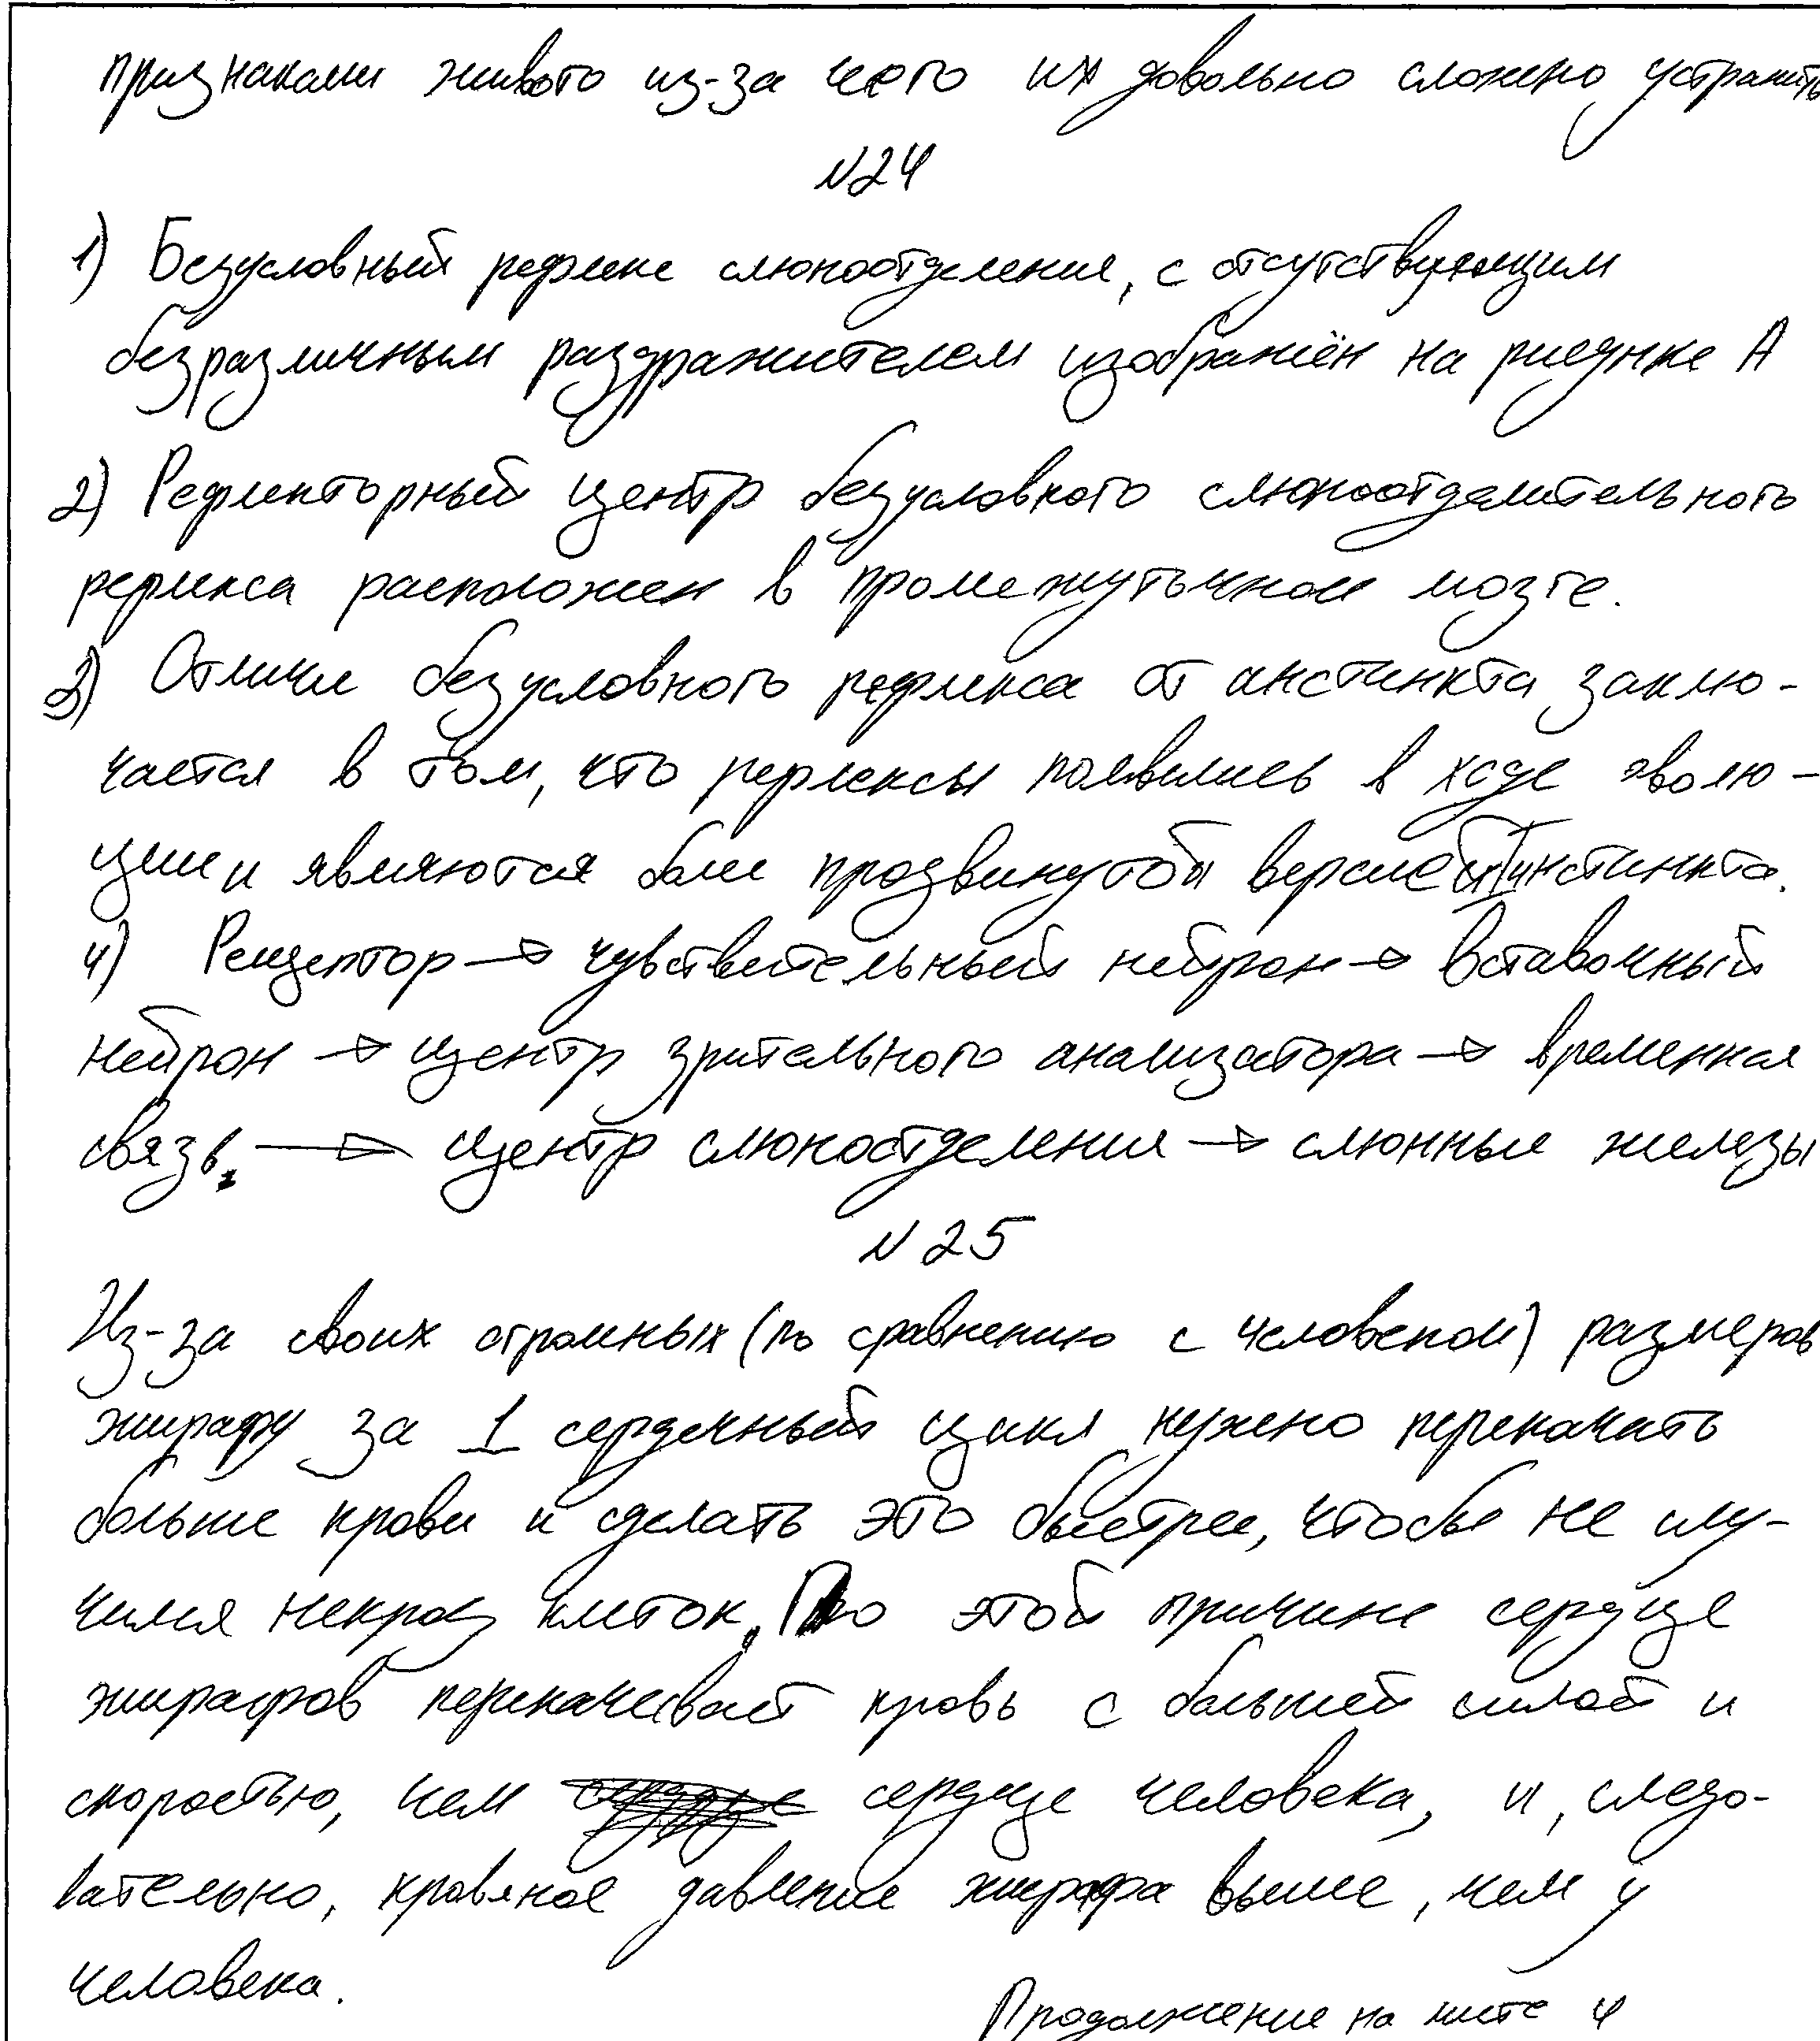 признаками живого из-за чего их довольно сложно устранить
№24
1) Безусловный рефлекс слюноотделения, с отсутствующим
безразличным раздражителем изображён на рисунке А
2) Рефлекторный центр безусловного слюноотделительного
рефлекса расположен в промежуточном мозге.
3) Отличие безусловного рефлекса от инстинкта заклю-
чается в том, что рефлексы появились в ходе эволю-
ции и являются более продвинутой версией инстинкта.
4) Рецептор → чувствительный нейрон → вставочный
нейрон → центр зрительного анализатора → временная
связь → центр слюноотделения → слюнные железы
№25
Из-за своих огромных (по сравнению с человеком) размеров
жирафу за 1 сердечный цикл нужно перекачать
больше крови и сделать это быстрее, чтобы не слу-
чился некроз клеток. По этой причине сердце
жирафов перекачивает кровь с большей силой и
скоростью, чем сердце человека, и, следо-
вательно, кровяное давление жирафа выше, чем у
человека.
Продолжение на листе 4